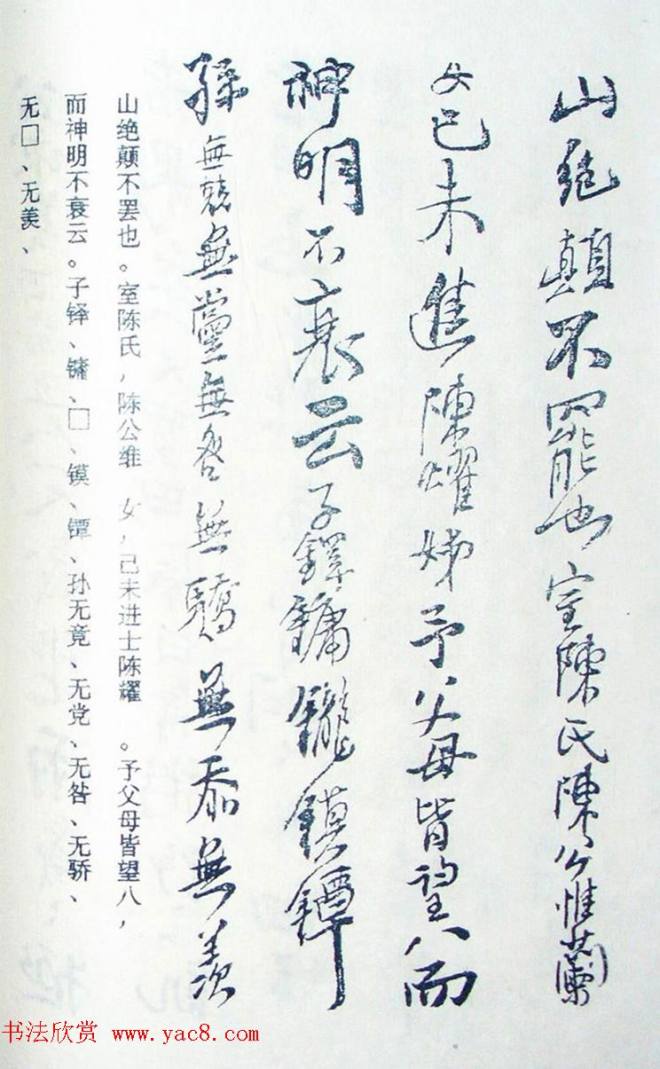 山絕顛不罷也室陳氏陳公惟蘭
女己未進陳耀姊予父母皆望八而
神明不衰云子鐸鏞鑨鏌鐔
孫無競無黨無咎無驕無忝無羨
山绝颠不罢也。室陈氏,陈公维 女,己未进士陈耀 。予父母皆望八,
而神明不衰云。子铎、镛、□、镆、镡、孙无竟、无党、无咎、无骄、
无□、无羡、
书法欣赏 www.yac8.com